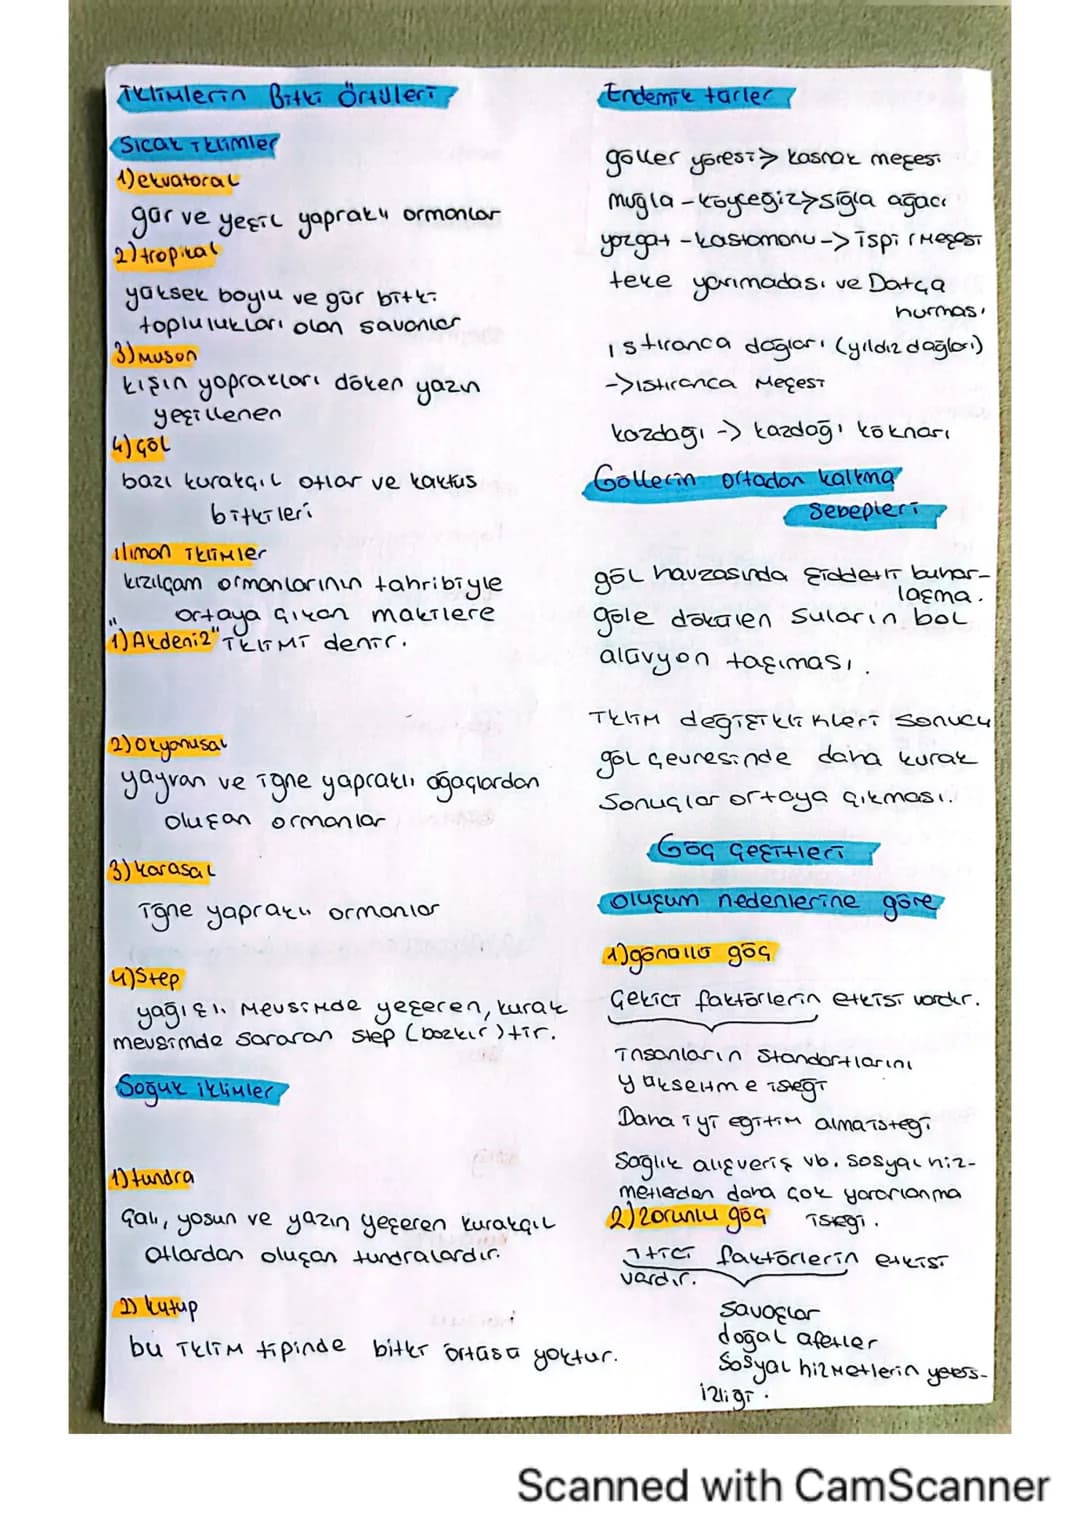 İklimlerin Bitki Örtüleri
Sıcak iklimler
1) ekvatoral
gür ve yeşil yapraklı ormanlar
2) tropikal
yüksek boylu ve gür bitki
toplulukları olan savanlar
3) Muson
kışın yaprakları döken yazın
yeşillenen
4) çöl
bazı kurakçıl otlar ve kaktüs
bitkileri
ılıman iklimler
kızılçam ormanlarının tahribiyle
ortaya çıkan makilere
1) Akdeniz "iklimi" denir.
2) Okyanusal
yayvan ve iğne yapraklı ağaçlardan
oluşan ormanlar
3) karasal
iğne yapraklı ormanlar
4) Step
yağışlı mevsimde yeşeren, kurak
mevsimde sararan step (bozkır)tir.
Soğuk iklimler
1) tundra
çalı, yosun ve yazın yeşeren kurakçıl
otlardan oluşan tundralardır.
2) kutup
bu iklim tipinde bitki örtüsü yoktur.
Endemik türler
göller yöresi > kasnak meşesi
muğla - köyceğiz > sığla ağacı
yozgat - kastamonu -> ispir meşesi
teke yarımadası ve Datça
hurması
ıstıranca dağları (yıldız dağları)
-> ıstıranca meşesi
kazdağı -> kazdağı köknarı
Göllerin ortadan kalkma
Sebepleri
göl havzasında şiddetli buhar-
laşma.
göle dökülen suların bol
alüvyon taşıması.
iklim değişiklikleri sonucu
göl çevresinde daha kurak
Sonuçlar ortaya çıkması.
Göç Çeşitleri
Oluşum nedenlerine göre
1) gönüllü göç
Çekici faktörlerin etkisi vardır.
insanların standartlarını
yükseltme isteği
Daha iyi eğitim alma isteği
Sağlık alışveriş vb. sosyal hiz-
metlerden daha çok yararlanma
isteği.
2) zorunlu göç
itici faktörlerin etkisi
vardır.
savaşlar
doğal afetler
Sosyal hizmetlerin yeters-
izliği.
Scanned with CamScanner